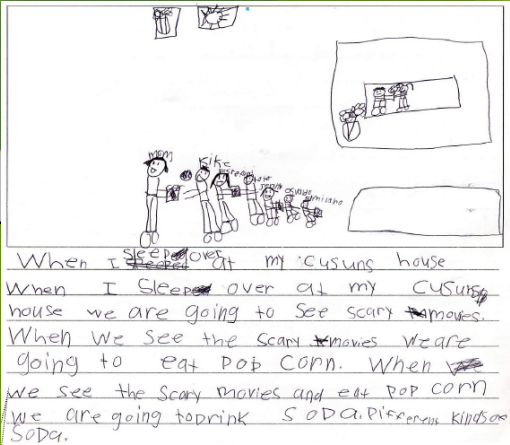 mom
Kike
When I sleep over at my cusuns house
When I Sleep over at my cusuns
house we are going to see scary movies.
When we see the scary movies we are
going to eat pop corn. When
we see the scary movies and eat pop corn
we are going to prink SoDa. Pifferens kinds of
SoDa.